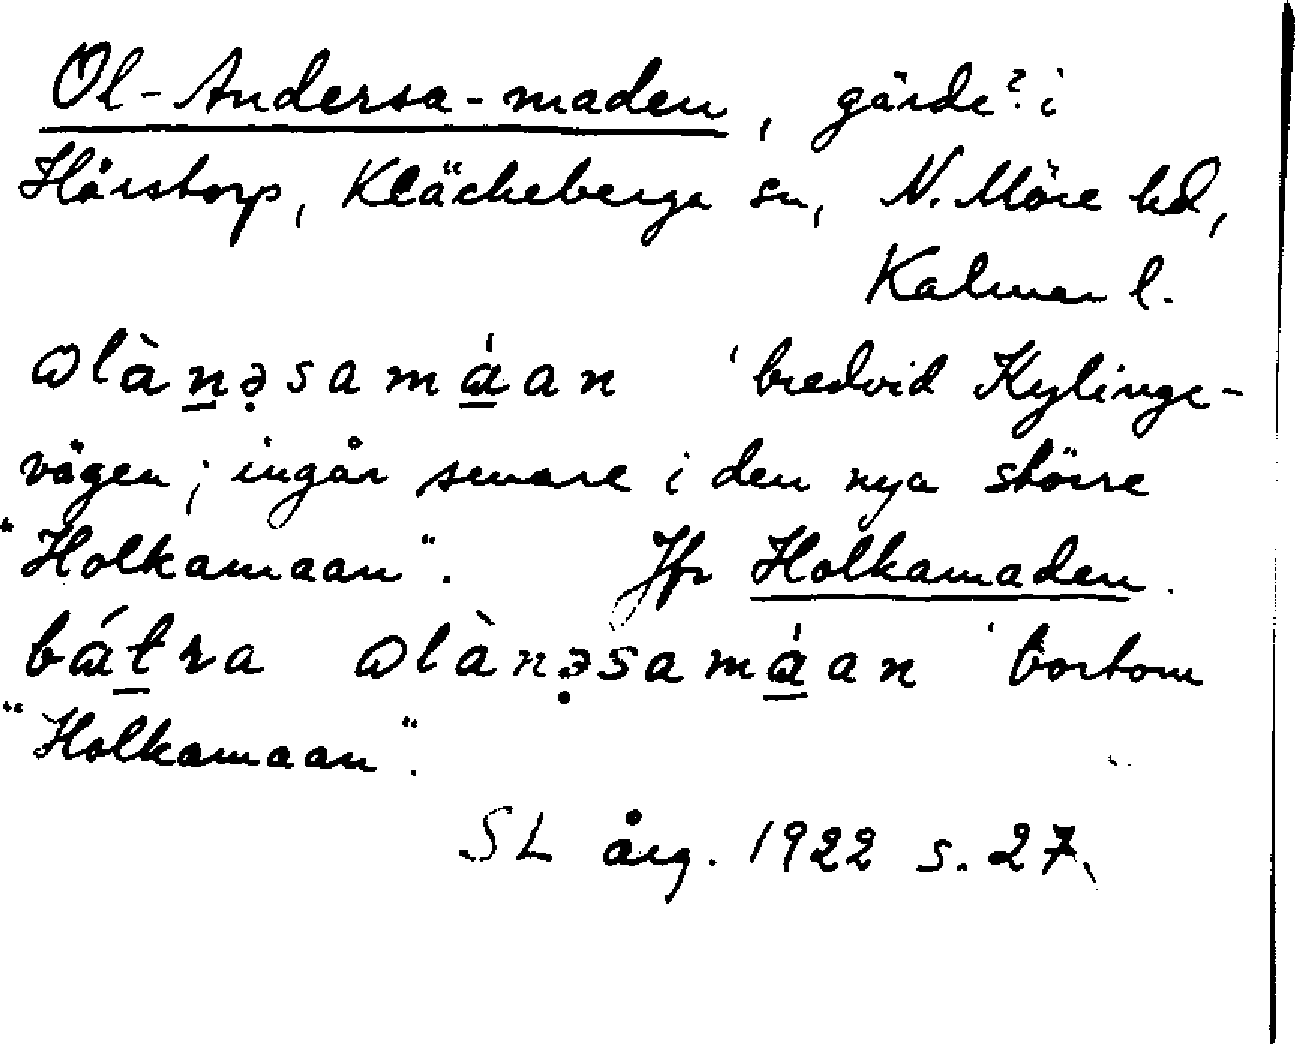 Ol-Andersa-maden, gärde? i
Hårstorp, Kläckeberga sn, N. Möre hd,
Kalmar l.
ɷlànə̣samáan ' bredvid Kylinge-
vägen; ingår senare i den nya större
"Holkamaan". Jfr Holkamaden.
bátra ɷlànə̣samáan ' bortom
"Holkamaan".
SL årg. 1922 s. 27.